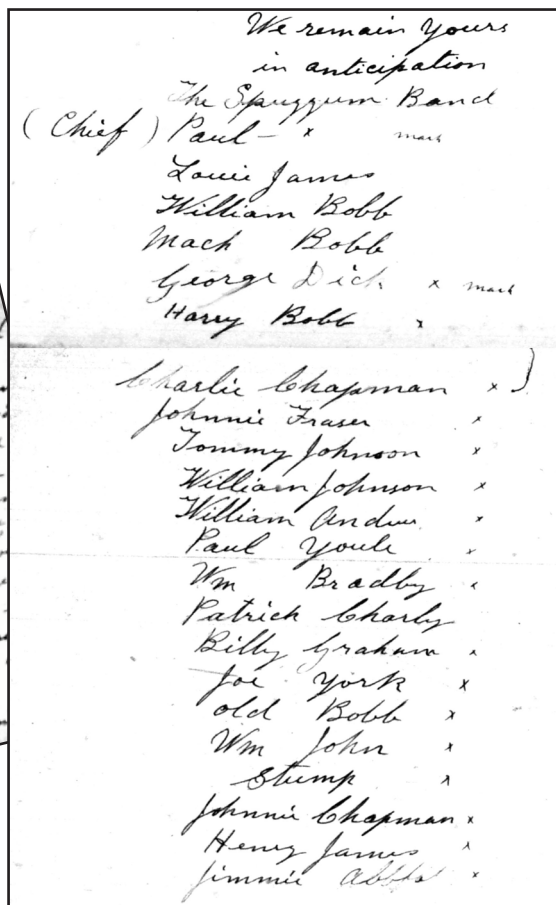 We remain Yours
in anticipation
The Spuzzum Band
(Chief) Paul - x mark
Louie James
William Bobb
Mack Bobb
George Dick x mark
Harry Bobb x
Charlie Chapman x
Johnnie Fraser x
Tommy Johnson x
William Johnson x
William Andrew x
Paul Youle x
Wm Bradby x
Patrick Charly
Billy Graham x
Joe York x
old Bobb x
Wm John x
Stump x
Johnnie Chapman x
Henry James x
Jimmie x